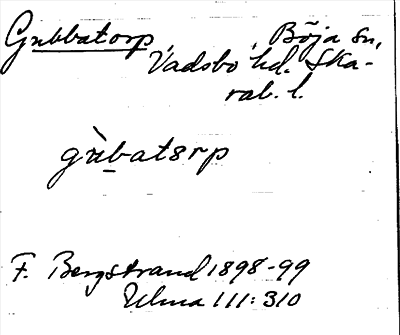 Grubbatorp, Böja sn,
Vadsbo hd. Ska-
rab. l.
F. Bergstrand 1898-99
Ulma 111:310